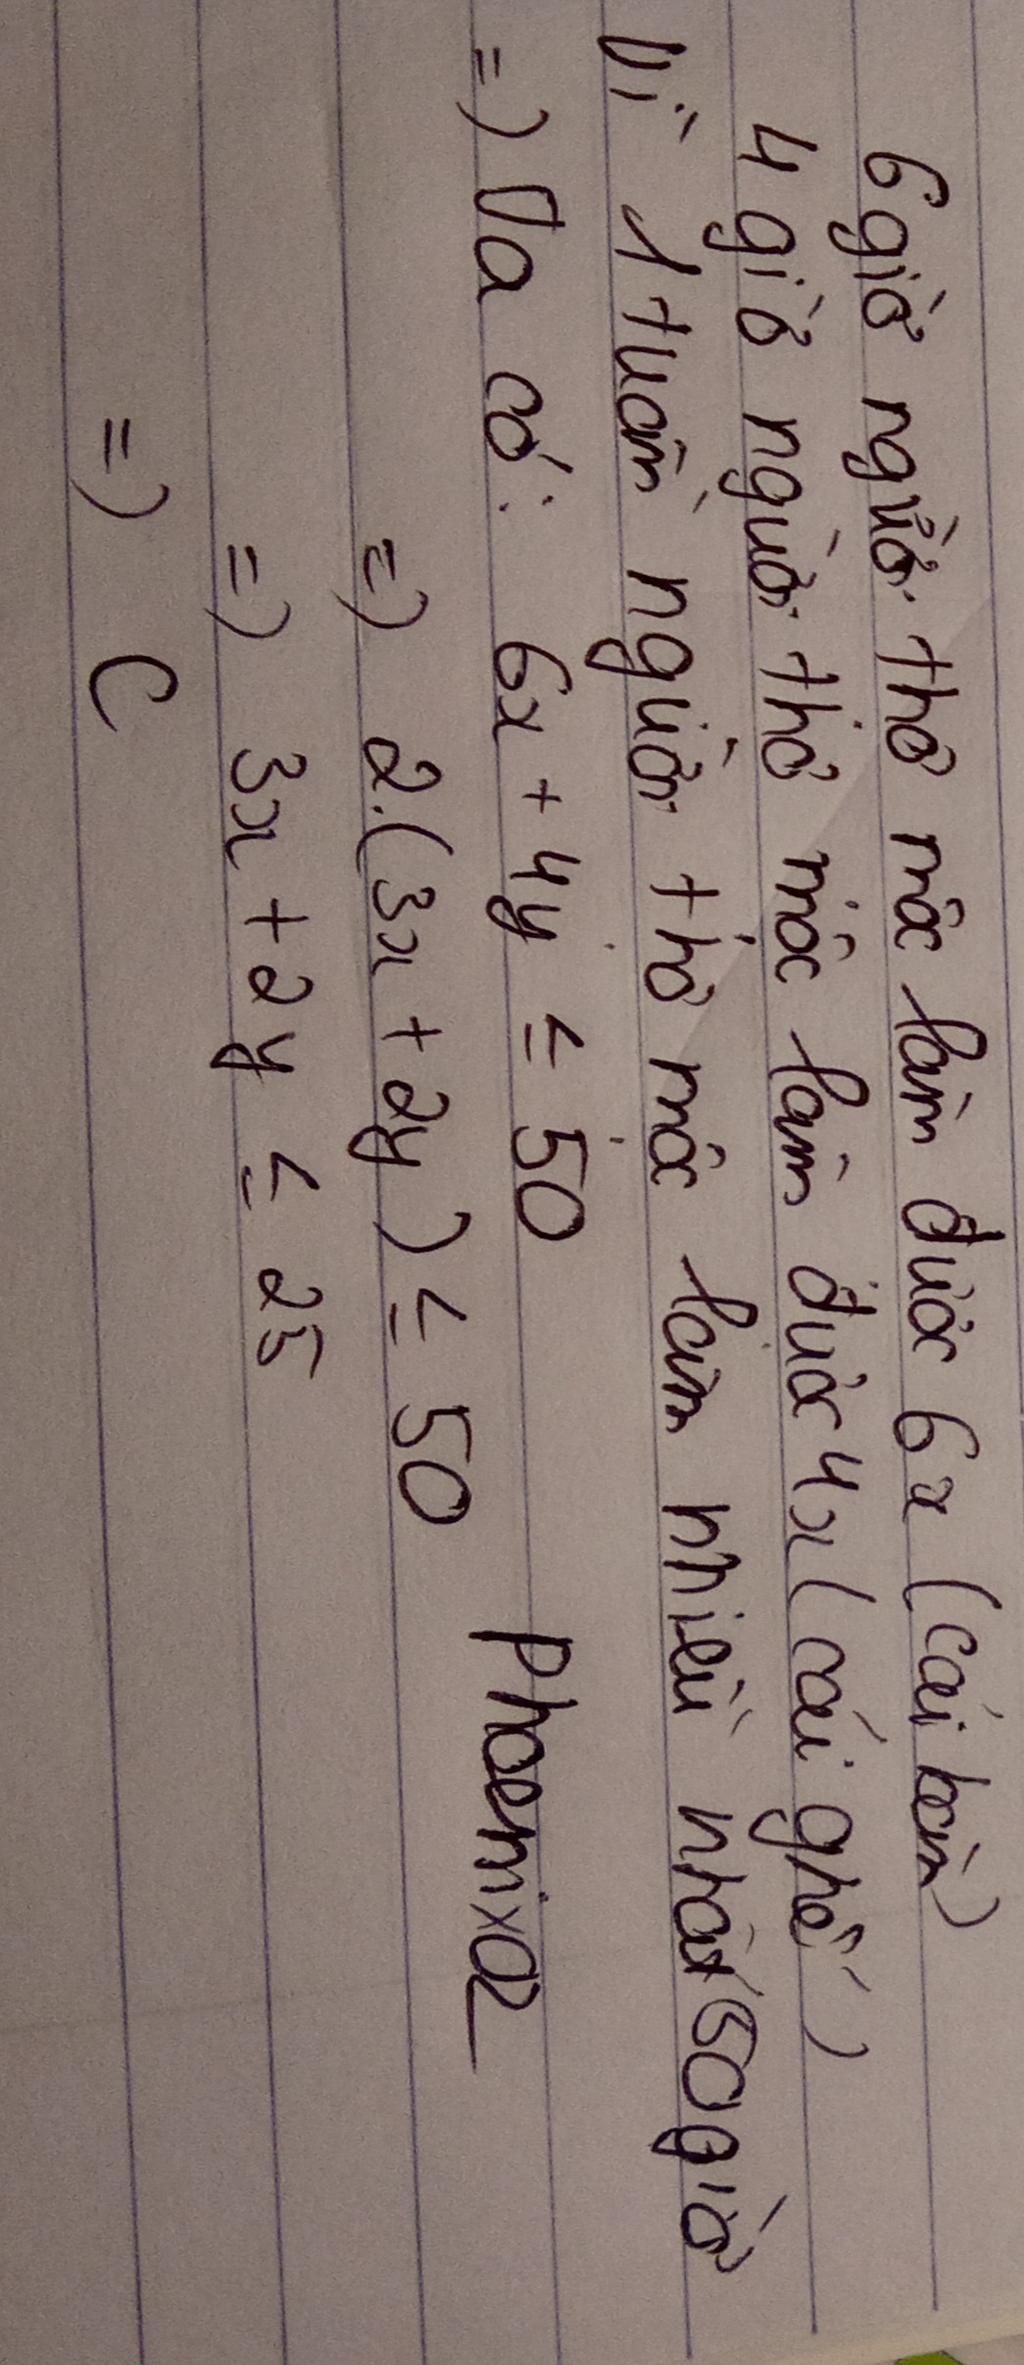 6 giờ người thợ mộc làm được 6x (cái bàn)
4 giờ người thợ mộc làm được 4x (cái ghế)
Vì 1 tuần người thợ mộc làm nhiều nhất 50 giờ
=) Ta có: 6x + 4y ≤ 50
=) 2.(3x + 2y) ≤ 50
=) 3x + 2y ≤ 25
=) C